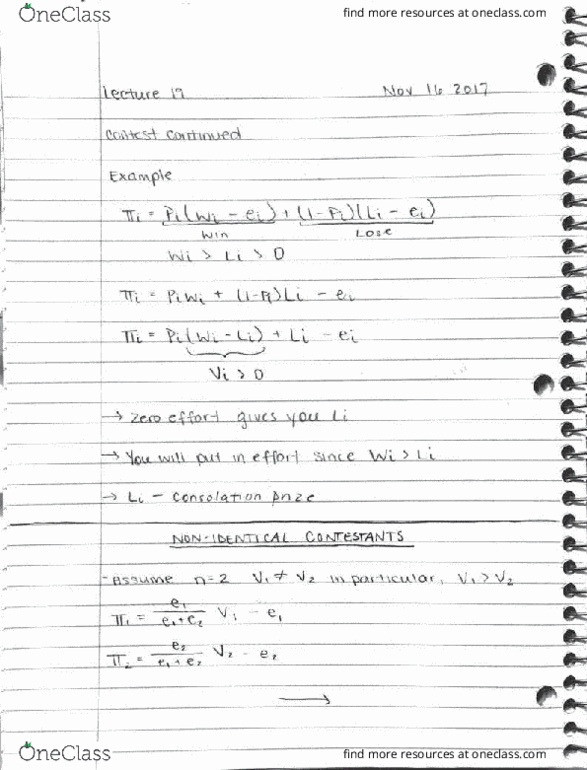 OneClass
find more resources at oneclass.com
Lecture 19
Nov 16 2017
Contest Continued
Example
πi = Pi(Wi - ei) + (1-Pi)(Li - ei)
Win
Lose
Wi > Li > 0
πi = PiWi + (1-Pi)Li - ei
πi = Pi(Wi - Li) + Li - ei
Vi > 0
→ Zero effort gives you Li
→ You will put in effort since Wi > Li
→ Li - Consolation prize
NON-IDENTICAL CONTESTANTS
- Assume n=2 V₁ ≠ V₂ in particular, V₁ > V₂
π₁ = e₁/(e₁+e₂) V₁ - e₁
π₂ = e₂/(e₁+e₂) V₂ - e₂
→
OneClass
find more resources at oneclass.com